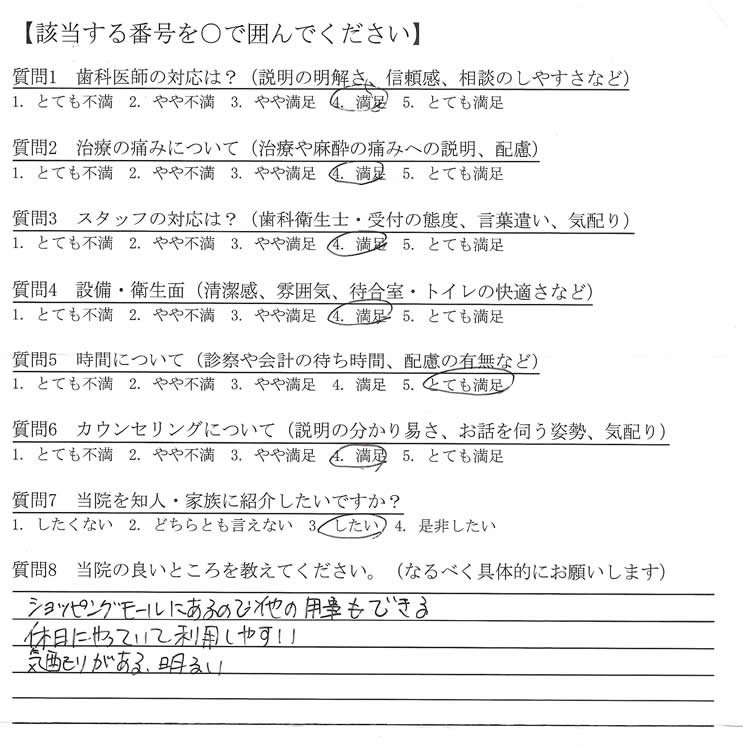 【該当する番号を〇で囲んでください】
質問1 歯科医師の対応は？（説明の明解さ、信頼感、相談のしやすさなど）
1. とても不満 2. やや不満 3. やや満足 4. 満足 5. とても満足
質問2 治療の痛みについて（治療や麻酔の痛みへの説明、配慮）
1. とても不満 2. やや不満 3. やや満足 4. 満足 5. とても満足
質問3 スタッフの対応は？（歯科衛生士・受付の態度、言葉遣い、気配り）
1. とても不満 2. やや不満 3. やや満足 4. 満足 5. とても満足
質問4 設備・衛生面（清潔感、雰囲気、待合室・トイレの快適さなど）
1. とても不満 2. やや不満 3. やや満足 4. 満足 5. とても満足
質問5 時間について（診察や会計の待ち時間、配慮の有無など）
1. とても不満 2. やや不満 3. やや満足 4. 満足 5. とても満足
質問6 カウンセリングについて（説明の分かり易さ、お話を伺う姿勢、気配り）
1. とても不満 2. やや不満 3. やや満足 4. 満足 5. とても満足
質問7 当院を知人・家族に紹介したいですか？
1. したくない 2. どちらとも言えない 3. したい 4. 是非したい
質問8 当院の良いところを教えてください。（なるべく具体的にお願いします）
ショッピングモールにあるので他の用事もできる
休日にやっていて利用しやすい
気配りがある、明るい